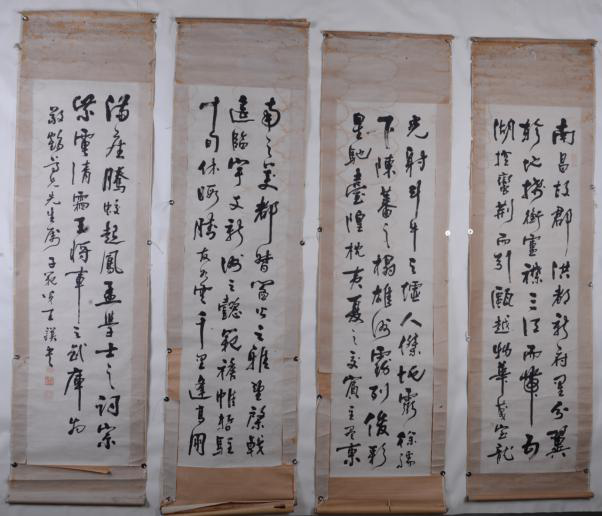 南昌故郡洪都新府星分翼
軫地接衡廬襟三江而帶五
湖控蠻荊而引甌越物華天寶龍
光射斗牛之墟人傑地靈徐孺
下陳蕃之榻雄州霧列俊彩
星馳臺隍枕夷夏之交賓主盡東
南之美都督閻公之雅望棨戟
遙臨宇文新州之懿範襜帷暫駐
十旬休暇勝友如雲千里逢高朋
滿座騰蛟起鳳孟學士之詞宗
紫電清霜王將軍之武庫
先生屬子範王書